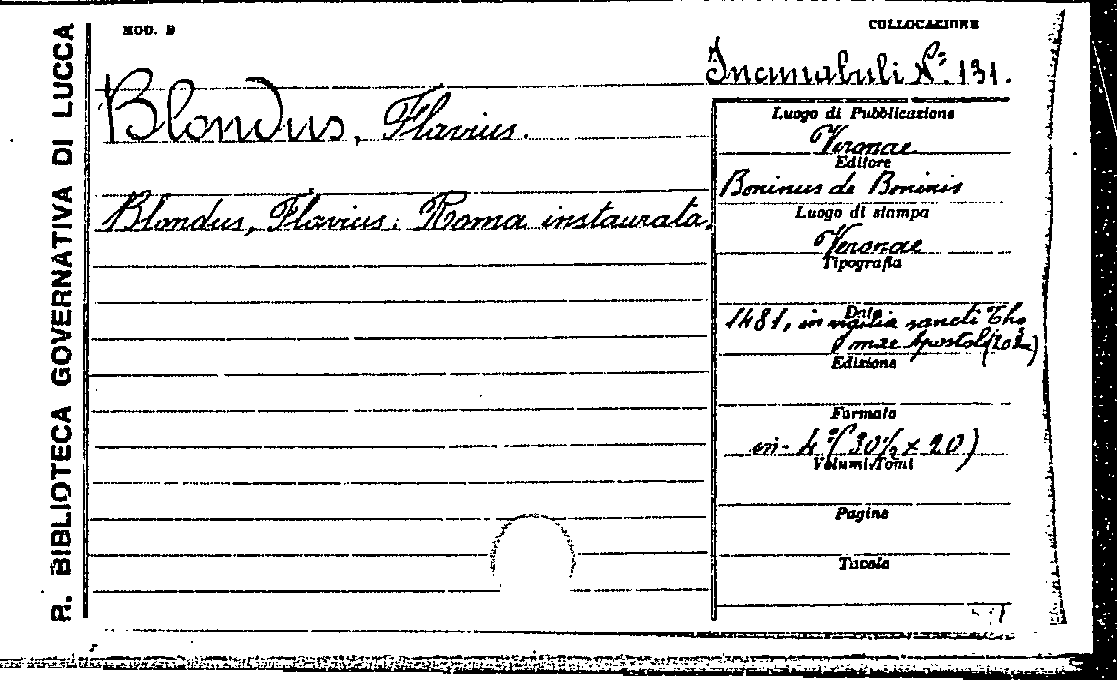 R. BIBLIOTECA GOVERNATIVA DI LUCCA
MOD. B
COLLOCAZIONE
Incunabuli N.º 131.
Blondus, Flavius.
Blondus, Flavius: Roma instaurata.
Luogo di Pubblicazione
Veronae
Editore
Boninus de Boninis
Luogo di stampa
Veronae
Tipografia
Data
1481, in vigilia sancti Tho
mae Apostoli
Edizione
Formato
in-4º (30½ x 20)
Volumi/Tomi
Pagine
Tavole